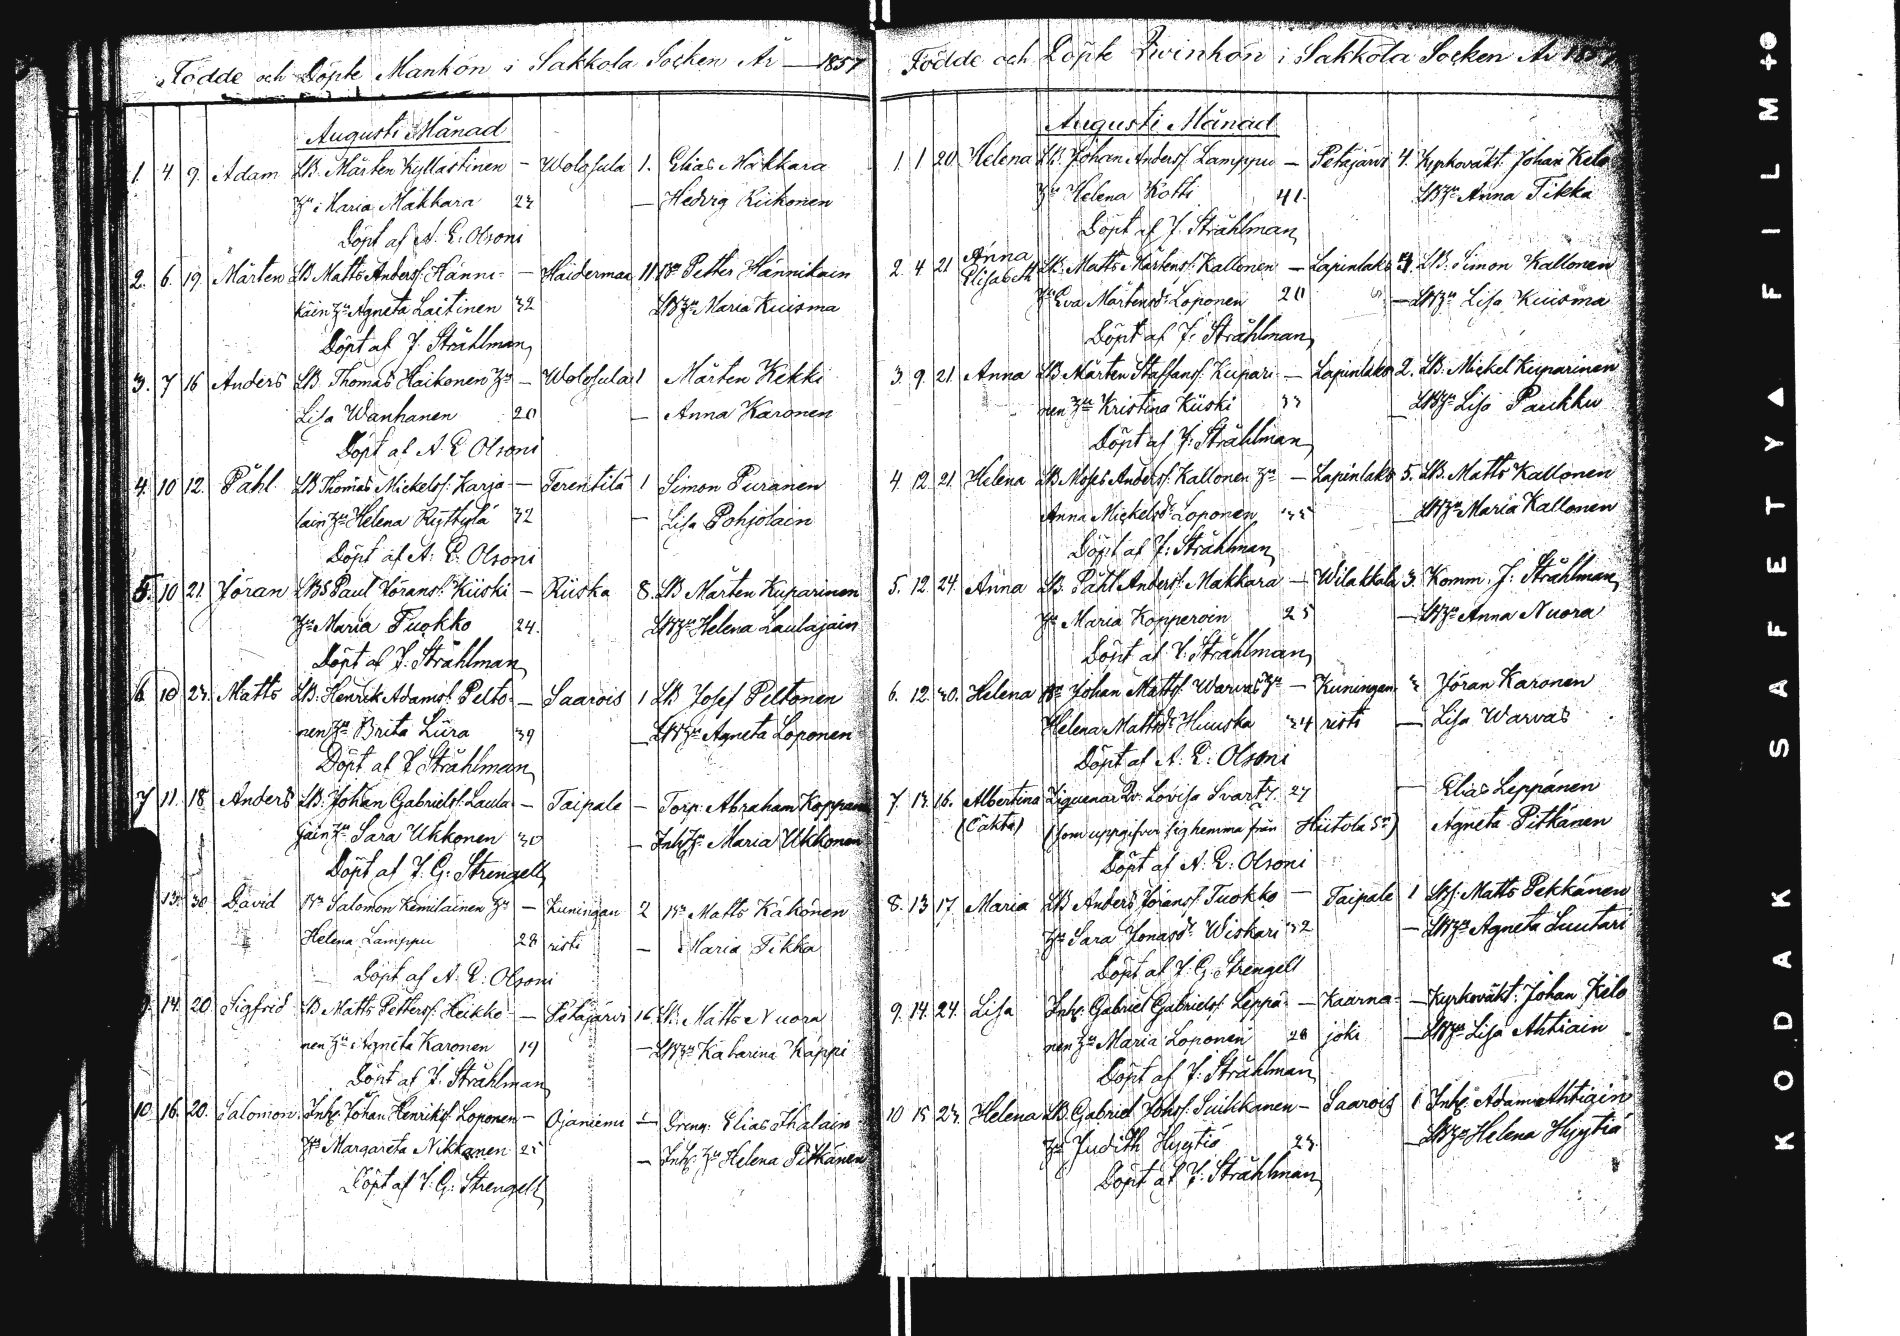 Födde och Döpte Mankön i Sakkola Socken År — 1857
Augusti Månad
1. 4. 9. Adam LB. Mårten Kyllästinen — Wolosula 1. Elias Mäkkara
H:u Maria Mäkkara 23 — Hedvig Riikonen
Döpt af A. E: Olsoni
2. 6. 19. Mårten LB Matts Anders: Hänni- — Haiderman 11 Petter Hännikain
käin H:u Agneta Laitinen 32 LBH:u Maria Kuisma
Döpt af J. Stråhlman
3. 7 16 Anders LB Thomas Haikonen H:u — Wolosula 1 Mårten Kekki
Lisa Wanhanen 20 — Anna Karonen
Döpt af A. E Olsoni
4. 10 12. Påhl LB Thomas Mickels: Karja- — Terentilä 1 Simon Puranen
lain H:u Helena Ryttylä 32 — Lisa Pohjolain
Döpt af A: E. Olsoni
5. 10 21. Jöran LBS Paul Jörans: Kiiski — Riiska 8. LB Mårten Kuparinen
H:u Maria Tuokko 24. LBH:u Helena Laulajain
Döpt af J. Stråhlman
6. 10 23. Matts LB. Henrik Adams: Pelto- — Saarois 1 LB Josef Peltonen
nen H:u Brita Liira 39 — LBH:u Agneta Loponen
Döpt af J Stråhlman
7 11. 18. Anders LB. Johan Gabriels: Laula- — Taipale — Torp: Abraham Koppanen
jain H:u Sara Ukkonen 30 — Inh:H:u Maria Ukkonen
Döpt af J. G: Strengell
13. 30 David Salomon Kemiläinen H:u — Kuningan 2 Matts Käkönen
Helena Lamppu 28 risti — Maria Tikka
Döpt af A. E: Olsoni
9. 14. 20. Sigfrid LB Matts Petters: Heikko- — Petäjärvi 16 LB. Matts Nuora
nen H:u Agneta Karonen 19 — LBH:u Katarina Kappi
Döpt af J. Stråhlman
10. 16. 20. Salomon. Inh: Johan Henriks: Loponen — Ojaniemi — Dreng: Elias Ihalain
H:u Margareta Nikkanen 25 — Inh: H:u Helena Pitkänen
Döpt af J. G: Strengell
Födde och Döpte Qwinkön i Sakkola Socken År 1857
Augusti Månad
1. 1 20. Helena LB. Johan Anders: Lamppu — Petäjärvi 4. Kyrkoväkt. Johan Kelo
H:u Helena Kotti 41. LBH:u Anna Tikka
Döpt af J. Stråhlman
2. 4 21 Anna Elisabeth LB. Matts Mårtens: Kallonen — Lapinlaks LB. Simon Kallonen
H:u Eva Mårtensd: Loponen 20 — LBH:u Lisa Kuisma
Döpt af J. Stråhlman
3. 9. 21. Anna LB Mårten Staffans: Kupari- — Lapinlaks 2. LB. Mickel Kuparinen
nen H:u Kristina Kiiski 33 — LBH:u Lisa Paukku
Döpt af J: Stråhlman
4. 12. 21. Helena LB Moses Anders: Kallonen H:u — Lapinlaks 5. LB. Matts Kallonen
Anna Mickelsd: Loponen 35 — LBH:u Maria Kallonen
Döpt af J: Stråhlman
5. 12. 24. Anna LB. Påhl Anders: Mäkkara — Wilakkala 3. Komm. J: Stråhlman
H:u Maria Kopperoin 25 — LBH:u Anna Nuora
Döpt af J. Stråhlman
6. 12. 30. Helena Johan Matts: Warvas H:u — Kuningan- 3 Jöran Karonen
Helena Mattsd: Huuska 34 risti — Lisa Warvas
Döpt af A. E: Olsoni
7. 13. 16. Albertina Ziguenar Qv. Lovisa Svart 27 — Elias Leppänen
(Oäkta) (som uppgifver sig hemma från Hiitola S:n) Agneta Pitkänen
Döpt af A. E: Olsoni
8. 13 17. Maria LB Anders Jörans: Tuokko — Taipale 1 Matts Pekkänen
H:u Sara Jonasd: Wiskari 32 — LBH:u Agneta Luutari
Döpt af J. G. Strengell
9. 14. 24. Lisa Inh: Gabriel Gabriels: Leppä- — Kaarna- — Kyrkoväkt: Johan Kelo
nen H:u Maria Loponen 28 joki — LBH:u Lisa Ahtiain
Döpt af J: Stråhlman
10 15 23. Helena LB. Gabriel Johs: Suikkanen — Saarois 1 Inh: Adam Ahtiain
H:u Judith Hyytiä 23. — LBH:u Helena Hyytiä
Döpt af J. Stråhlman
KODAK SAFETY ▲ FILM